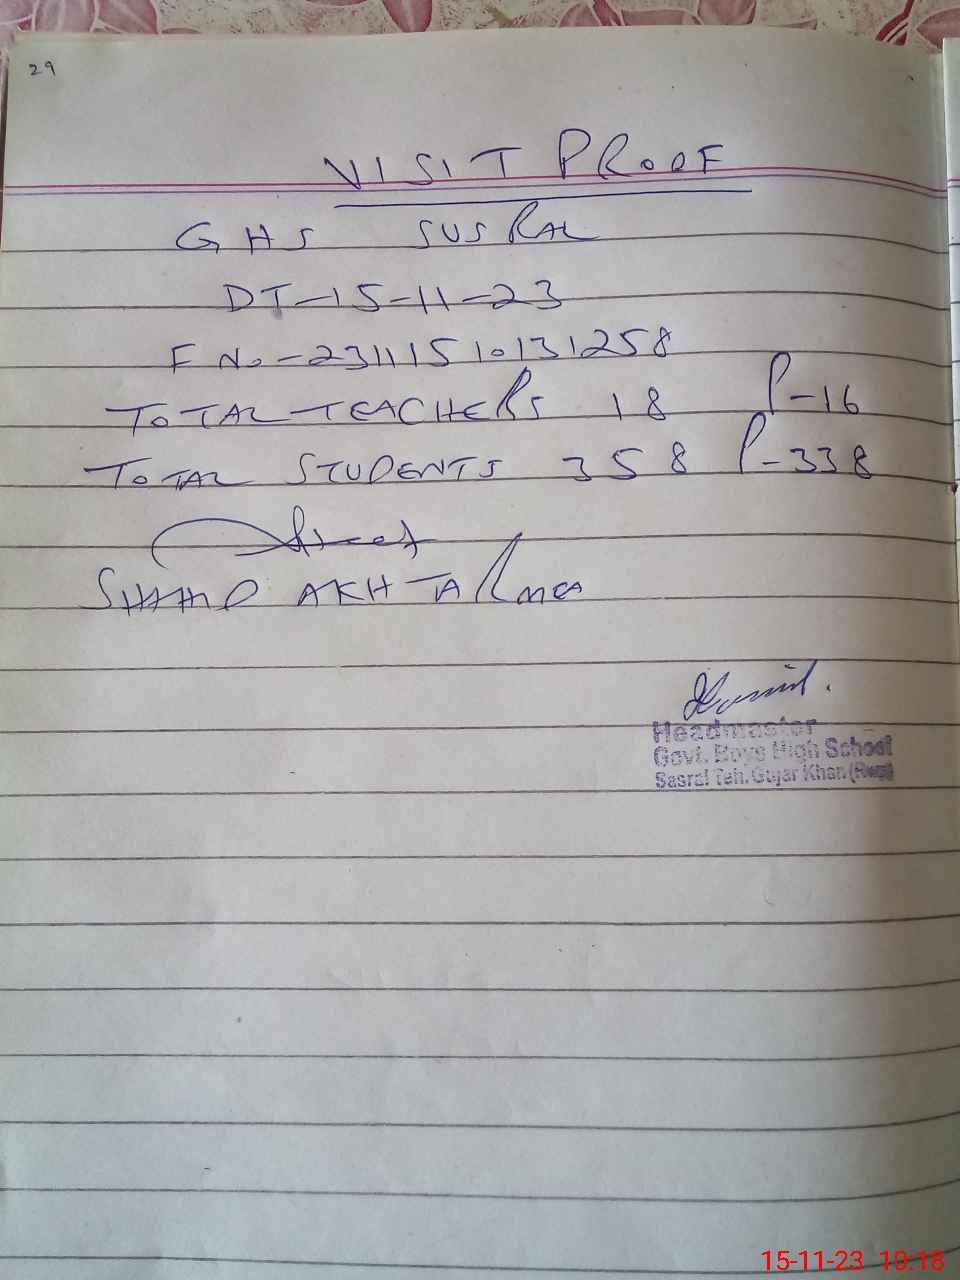 29
VISIT PROOF
GHS SUSRAL
DT-15-11-23
F No-23111510131258
TOTAL TEACHERS 18 P-16
TOTAL STUDENTS 358 P-338
SHAHID AKHTAR MEA
Headmaster
Govt. Boys High School
Sasral Teh. Gujar Khan (Rwp)
15-11-23 10:18